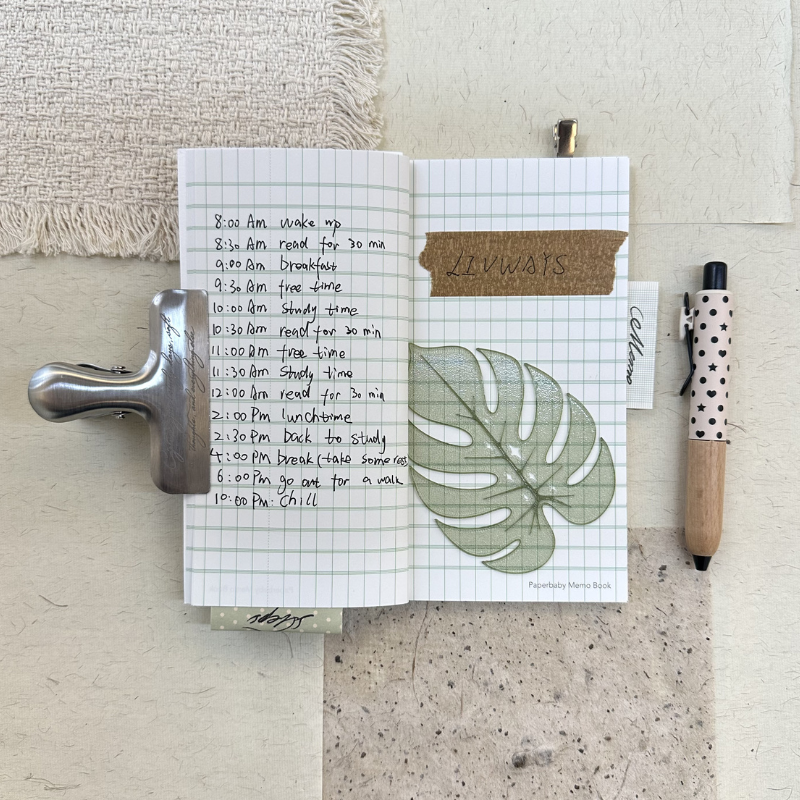 8:00 Am wake up
8:30 Am read for 30 min
9:00 Am breakfast
9:30 Am free time
10:00 Am study time
10:30 Am read for 30 min
11:00 Am free time
11:30 Am study time
12:00 Am read for 30 min
2:00 Pm lunchtime
2:30 Pm back to study
4:00 Pm break (take some rest
6:00 Pm go out for a walk
10:00 Pm: Chill
LIVWAYS
Memo
Paperbaby Memo Book